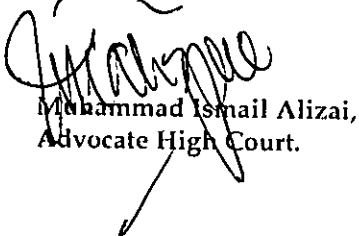 Muhammad Ismail Alizai,
Advocate High Court.